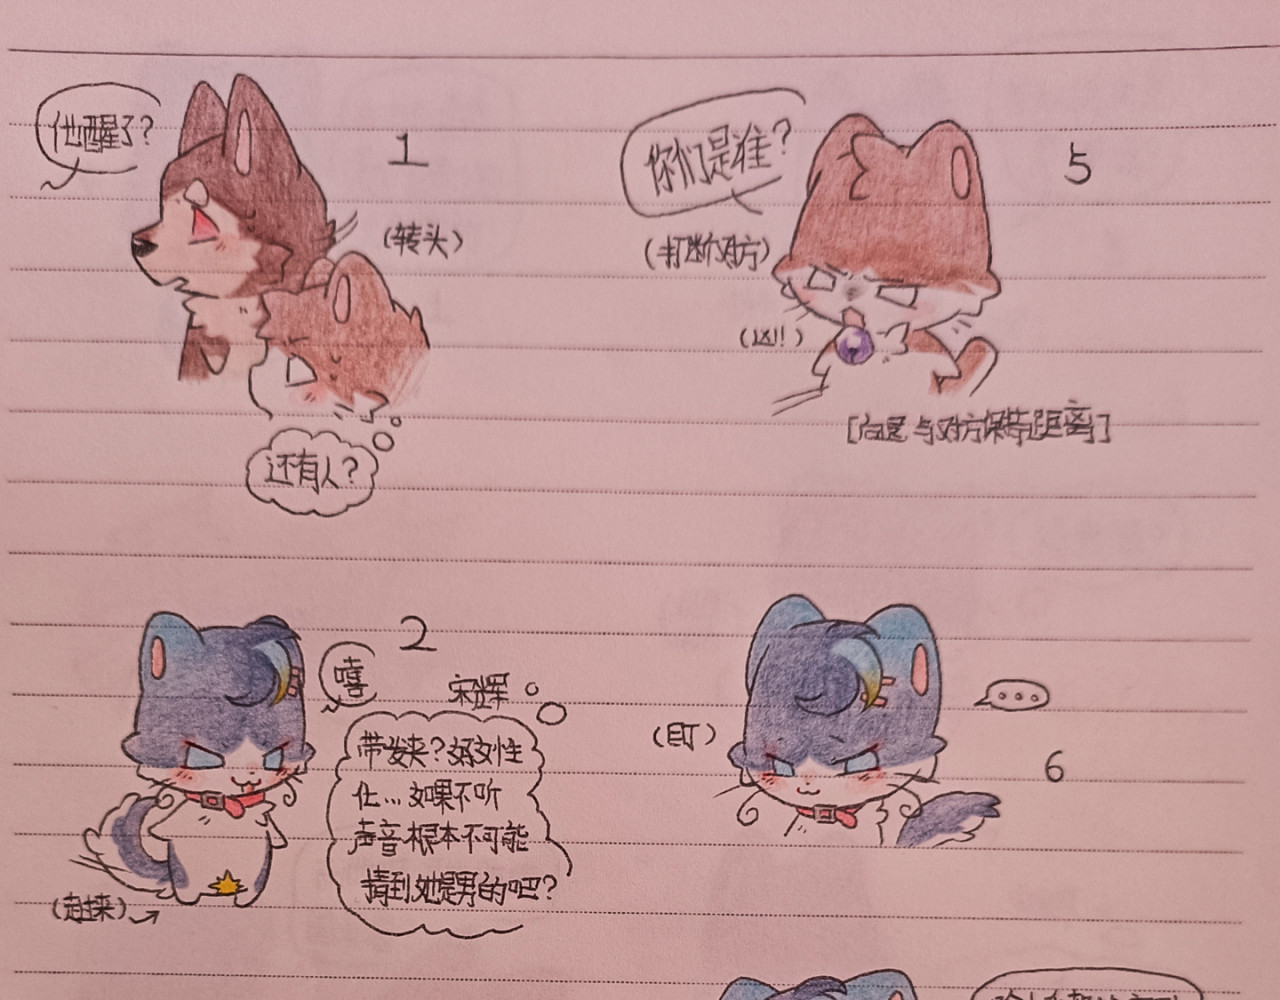 他醒了？
1
（转头）
还有人？
2
嘻
宋辉
带发夹？好女性
化…如果不听
声音根本不可能
猜到她是男的吧？
（走来）
5
你们是谁？
（打断对方）
（凶!!）
与对方保持距离］
（盯）
...
6